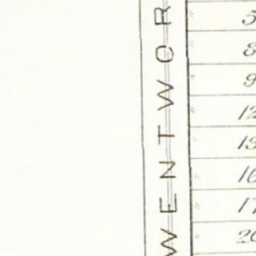 WENTWOR
5
8
9
12
13
16
17
20